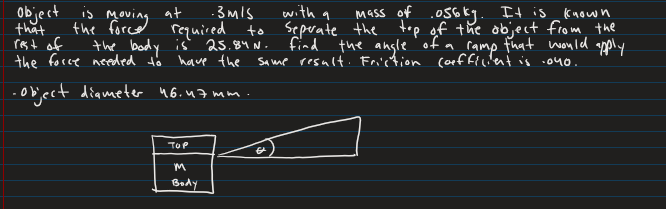 Object is moving at .3m/s with a mass of .056kg. It is known
that the force required to seprate the top of the object from the
rest of the body is 25.84N. find the angle of a ramp that would apply
the force needed to have the same result. Friction coefficient is .040.
- Object diameter 46.47mm.
TOP
M
Body
θ